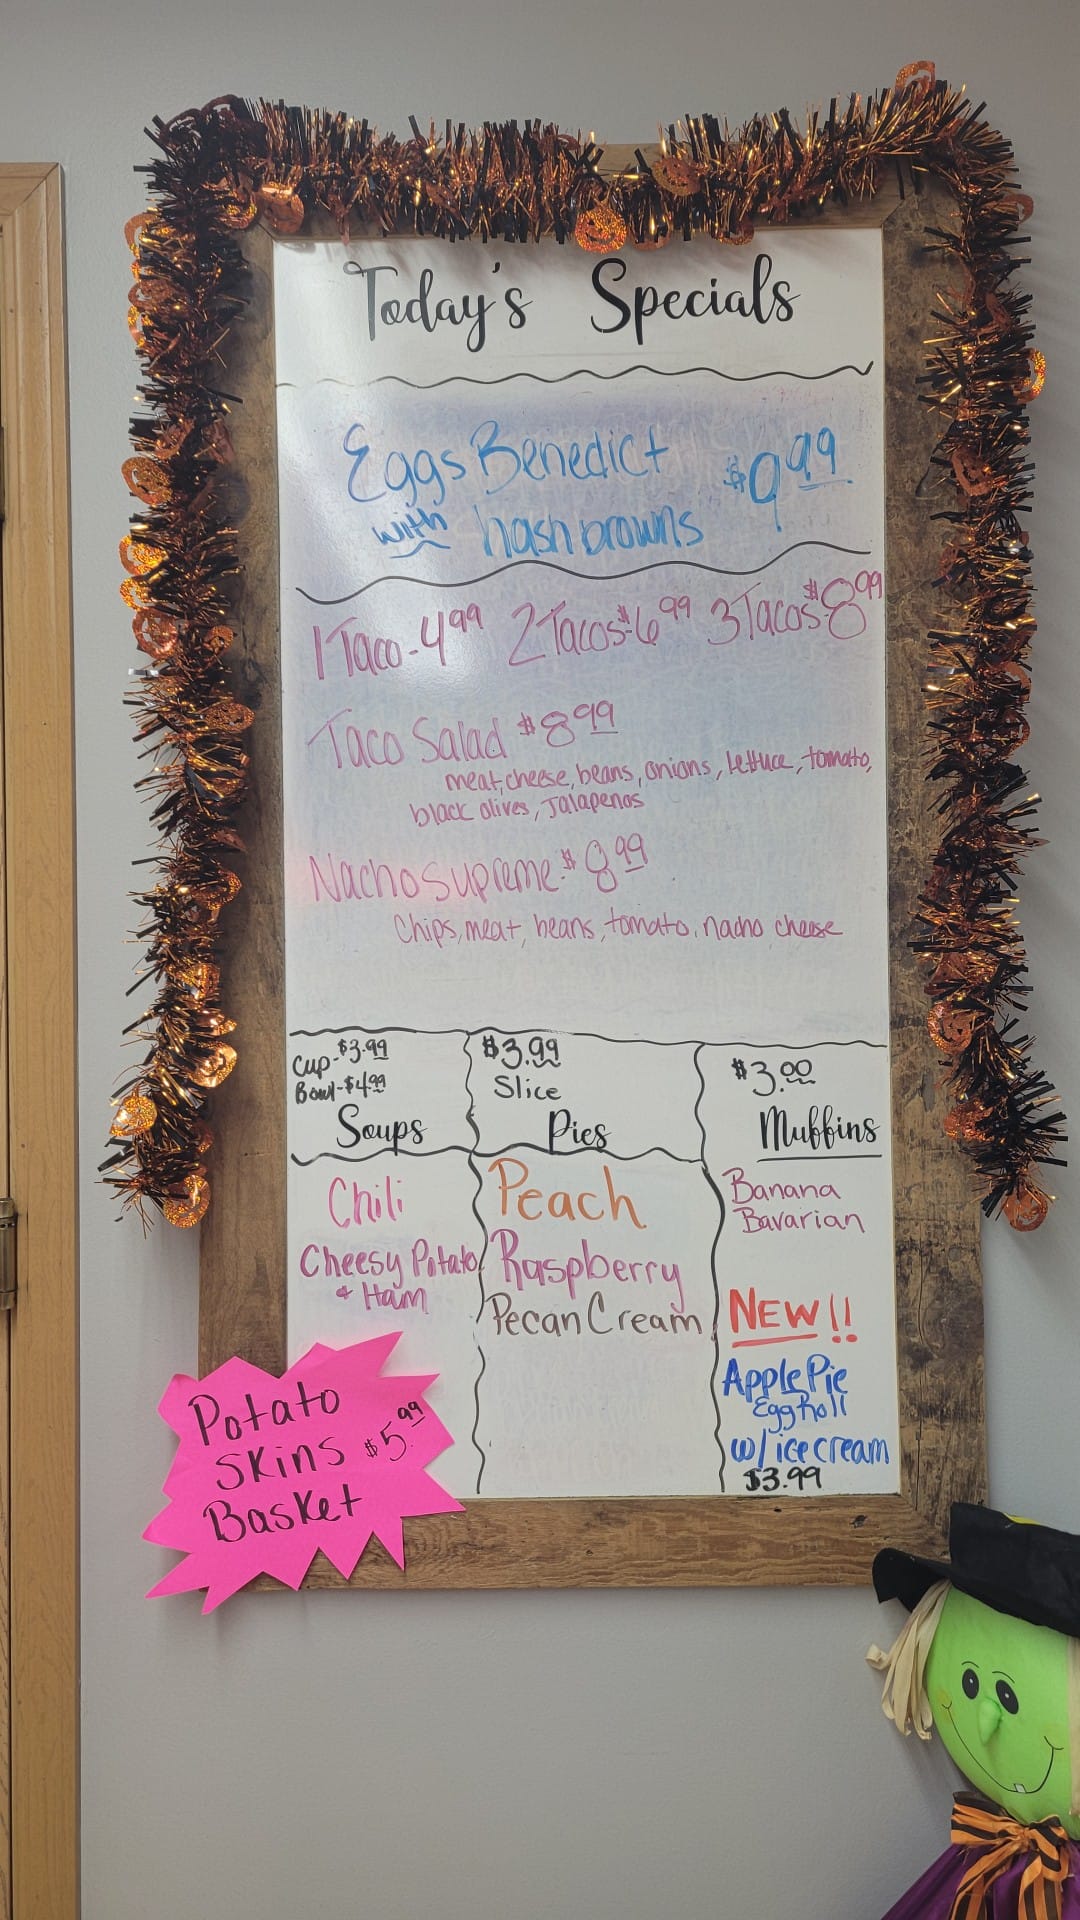 Today's Specials
Eggs Benedict $9.99
with hashbrowns
1 Taco - 4.99 2 Tacos - $6.99 3 Tacos - $8.99
Taco Salad $8.99
meat, cheese, beans, onions, lettuce, tomato,
black olives, Jalapenos
Nacho Supreme - $8.99
Chips, meat, beans, tomato, nacho cheese
Cup - $3.99
Bowl - $4.99
Soups
Chili
Cheesy Potato
& Ham
$3.99
Slice
Pies
Peach
Raspberry
Pecan Cream
$3.00
Muffins
Banana
Bavarian
NEW!!
Apple Pie
Egg Roll
w/ ice cream
$3.99
Potato
Skins $5.99
Basket